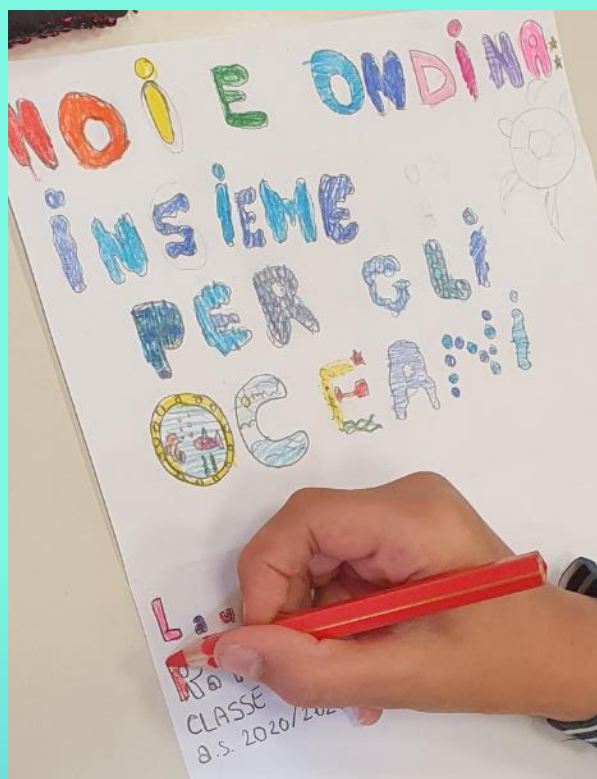 NOI E ONDINA
INSIEME
PER GLI
OCEANI
CLASSE
a.s. 2020/202